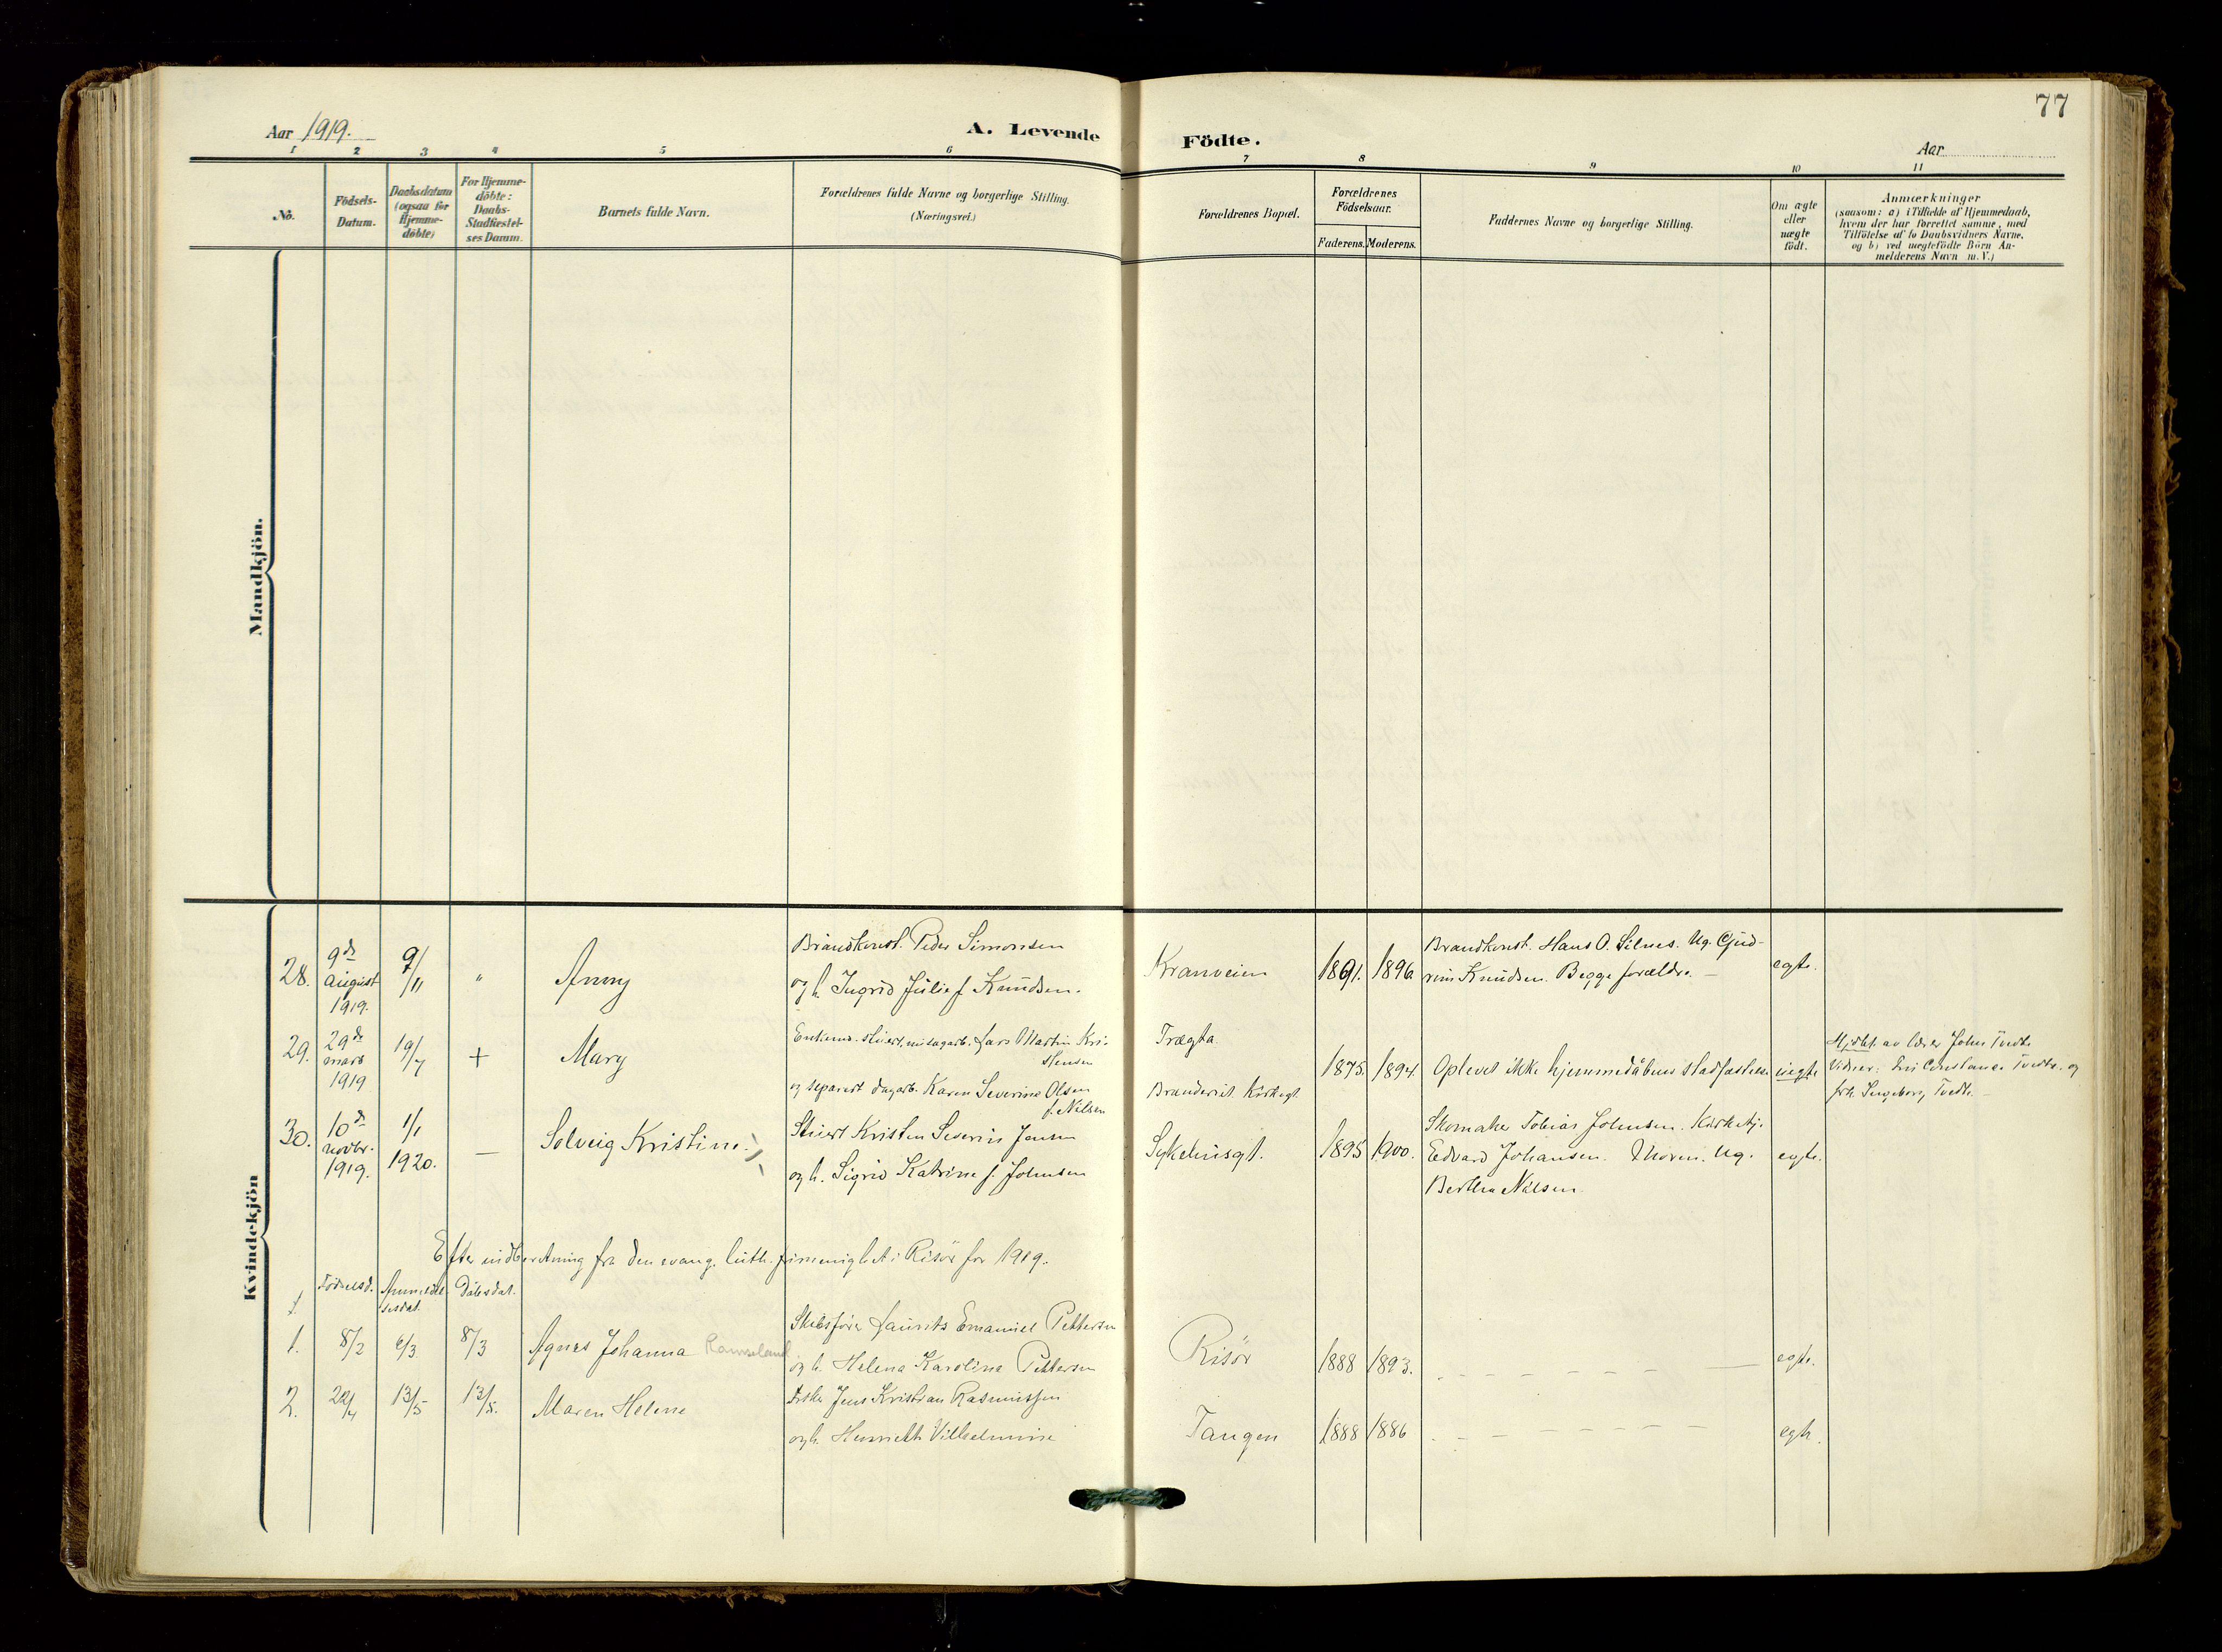 77
Aar 1919.
A. Levende Födte.
Aar
1 2 3 4 5 6 7 8 9 10 11
No.
Födsels-
Datum.
Daabsdatum
(ogsaa for
Hjemme-
döbte)
For Hjemme-
döbte:
Daabs-
Stadfæstel-
ses Datum.
Barnets fulde Navn.
Forældrenes fulde Navne og borgerlige Stilling.
(Næringsvei.)
Forældrenes Bopæl.
Forældrenes
Födselsaar.
Faderens. Moderens.
Faddernes Navne og borgerlige Stilling.
Om ægte
eller
uægte
födt.
Anmærkninger
(saasom: a) i Tilfælde af Hjemmedaab,
hvem der har forrettet samme, med
Tilföielse af to Daabsvidners Navne,
og b) ved uægtefödte Börn An-
melderens Navn m.V.)
Mandkjön.
Kvindekjön
28.
9de
august
1919.
9/11
"
Anny
Brandkonst. Peder Simonsen
og h. Ingrid Julie f. Knudsen.
Kranveien
1891. 1896
Brandkonst. Hans O. Silnes. Ug. Gud-
run Knudsen. Begge forældre. —
egte.
29.
29de
mars
1919
19/7
+
Mary
Enkem. Lars Martin Kri-
stensen
og separert dagarb. Karen Severine Olsen
f. Nilsen
Trægta.
Kirkegt.
1875. 1894.
Oplevet ikke hjemmedåbens stadfæstelse
uegte
Hjdbt. av lærer John Tvedt.
Vidner: Constance Tvedt. og
frk. Ingeborg Tvedt. —
30.
10de
novbr.
1919.
1/1
1920.
—
Solveig Kristine.
Stuert Kristen Severin Jensen
og h. Sigrid Katrine f. Johnsen
Sykehusgt.
1895 1900.
Skomaker Tobias Johnsen. Kirketj.
Edvard Johansen. Moren. Ug.
Bertha Nilsen.
egte.
Efter indberetning fra den evang. luth. frimenighet i Risör for 1919.
Fødselsd. Anmeldel-
sesdat.
Dåbsdat.
1.
8/2
6/3.
8/3
Agnes Johanna
Skibsfører Laurits Emanuel Pettersen
og h. Helena Karoline Pettersen
Risör
1888 1893.
egte.
2.
22/4
13/5
13/5.
Maren Helene
Fisker Jens Kristian Rasmussen
og h. Henriette Vilhelmine
Tangen
1888 1886
egte.